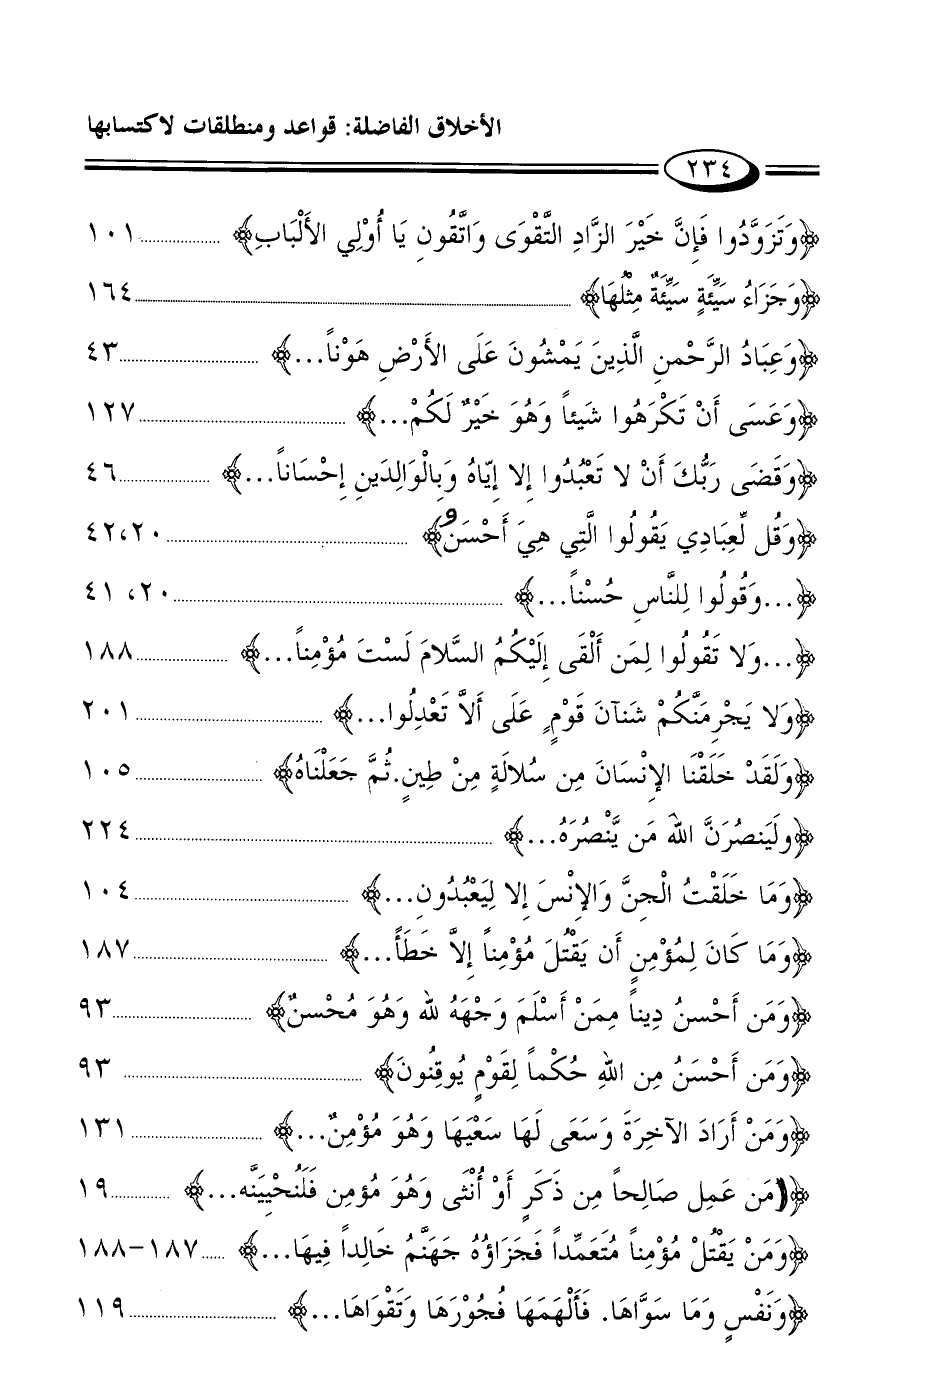 الأخلاق الفاضلة: قواعد ومنطلقات لاكتسابها
٢٣٤
﴿وَتَزَوَّدُوا فَإِنَّ خَيْرَ الزَّادِ التَّقْوَى وَاتَّقُونِ يَا أُوْلِي الأَلْبَابِ﴾ ........ ١٠١
﴿وَجَزَاءُ سَيِّئَةٍ سَيِّئَةٌ مِثْلُهَا﴾ ........ ١٦٤
﴿وَعِبَادُ الرَّحْمنِ الَّذِينَ يَمْشُونَ عَلَى الأَرْضِ هَوْناً...﴾ ........ ٤٣
﴿وَعَسَى أَنْ تَكْرَهُوا شَيئاً وَهُوَ خَيْرٌ لَكُمْ...﴾ ........ ١٢٧
﴿وَقَضَى رَبُّكَ أَنْ لا تَعْبُدُوا إِلا إِيّاهُ وَبِالْوَالِدَينِ إِحْسَاناً...﴾ ........ ٤٦
﴿وَقُل لِّعِبَادِي يَقُولُوا الَّتِي هِيَ أَحْسَنُ﴾ ........ ٤٢،٢٠
﴿...وَقُولُوا لِلنَّاسِ حُسْناً...﴾ ........ ٢٠، ٤١
﴿...وَلا تَقُولُوا لِمَن أَلْقَى إِلَيْكُمُ السَّلامَ لَسْتَ مُؤْمِناً...﴾ ........ ١٨٨
﴿وَلا يَجْرِمَنَّكُمْ شَنآنَ قَوْمٍ عَلَى أَلاَّ تَعْدِلُوا...﴾ ........ ٢٠١
﴿وَلَقَدْ خَلَقْنَا الإِنْسَانَ مِن سُلالَةٍ مِنْ طِينٍ.ثُمَّ جَعَلْنَاهُ﴾ ........ ١٠٥
﴿ولَيَنصُرَنَّ اللهَ مَن يَّنْصُرَهُ...﴾ ........ ٢٢٤
﴿وَمَا خَلَقْتُ الْجِنَّ وَالإِنْسَ إِلا لِيَعْبُدُونِ...﴾ ........ ١٠٤
﴿وَمَا كَانَ لِمُؤْمِنٍ أَن يَقْتُلَ مُؤْمِناً إِلاَّ خَطَأً...﴾ ........ ١٨٧
﴿وَمَن أَحْسنُ دِيناً مِمَنْ أَسْلَمَ وَجْهَهُ لله وَهُوَ مُحْسنٌ﴾ ........ ٩٣
﴿وَمَن أَحْسَنُ مِن اللهِ حُكْماً لِقَوْمٍ يُوقِنُونَ﴾ ........ ٩٣
﴿وَمَنْ أَرَادَ الآخِرَةَ وَسَعَى لَهَا سَعْيَهَا وَهُوَ مُؤْمِنٌ...﴾ ........ ١٣١
﴿مَن عَمِل صَالِحاً مِن ذَكَرٍ أَوْ أُنْثَى وَهُوَ مُؤمِن فَلَنُحْيِيَنَّه...﴾ ........ ١٩
﴿وَمَنْ يَقْتُلْ مُؤْمِناً مُتَعَمِّداً فَجَزَاؤُهُ جَهَنَّمُ خَالِداً فِيهَا...﴾ ...... ١٨٧-١٨٨
﴿وَنَفْسٍ وَمَا سَوَّاهَا. فَأَلْهَمَهَا فُجُوْرَهَا وَتَقْوَاهَا...﴾ ........ ١١٩